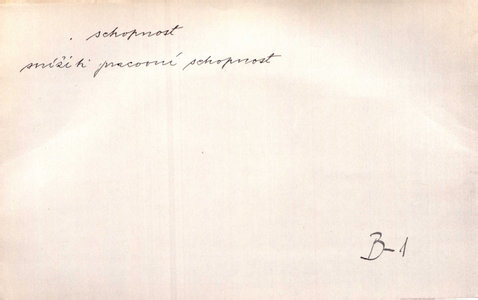 schopnost
snížiti pracovní schopnost
B-1